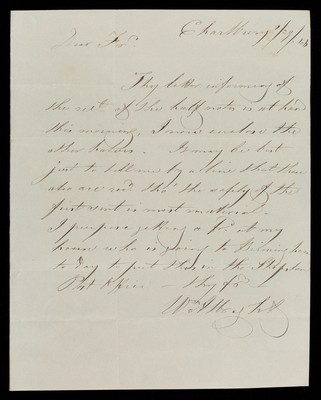 Dear Fd.
Thy letter informing of
the rect. of the half notes is at hand
this morning, I now enclose the
other halves. It may be but
just to tell me by a line that these
also are recd. tho' the safety of the
first sent is most material.
I purpose getting a Frd. at my
house who is going to Birmingham
to day to put this in the
Post Office — thy frd